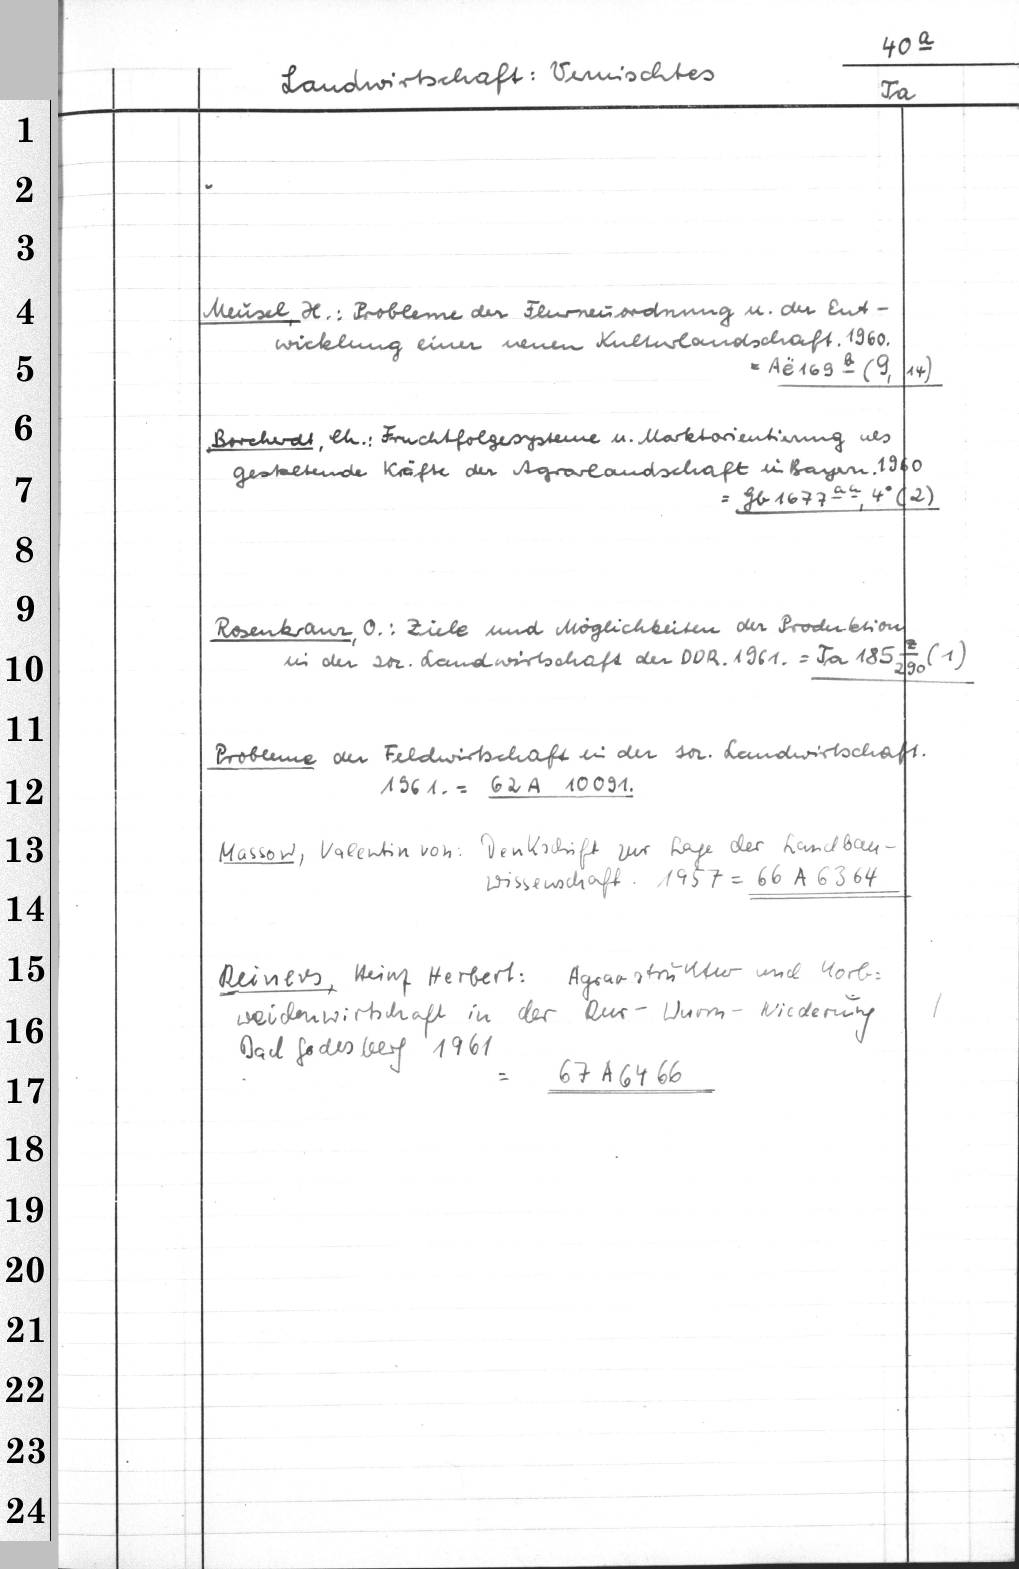 40 a
Landwirtschaft: Vermischtes
Ta
1
2
3
4
Meusel, H.: Probleme der Flurneuordnung u. der Ent-
wicklung einer neuen Kulturlandschaft. 1960.
5
= Aë 169 a (9, 14)
6
Borcherdt, Ch.: Fruchtfolgesysteme u. Marktorientierung als
gestaltende Kräfte der Agrarlandschaft in Bayern. 1960
7
= Gb 1677 aa, 4° (2)
8
9
Rosenkranz, O.: Ziele und Möglichkeiten der Produktion
10
in der soz. Landwirtschaft der DDR. 1961. = Ta 185 z/290 (1)
11
Probleme der Feldwirtschaft in der soz. Landwirtschaft.
12
1961. = 62 A 10091.
13
Massow, Valentin von: Denkschrift zur Lage der Landbau-
wissenschaft. 1957 = 66 A 6364
14
15
Reiners, Heinz Herbert: Agrarstruktur und Korb=
weidenwirtschaft in der Rur-Wurm-Niederung
16
Bad Godesberg 1961
17
= 67 A 6466
18
19
20
21
22
23
24